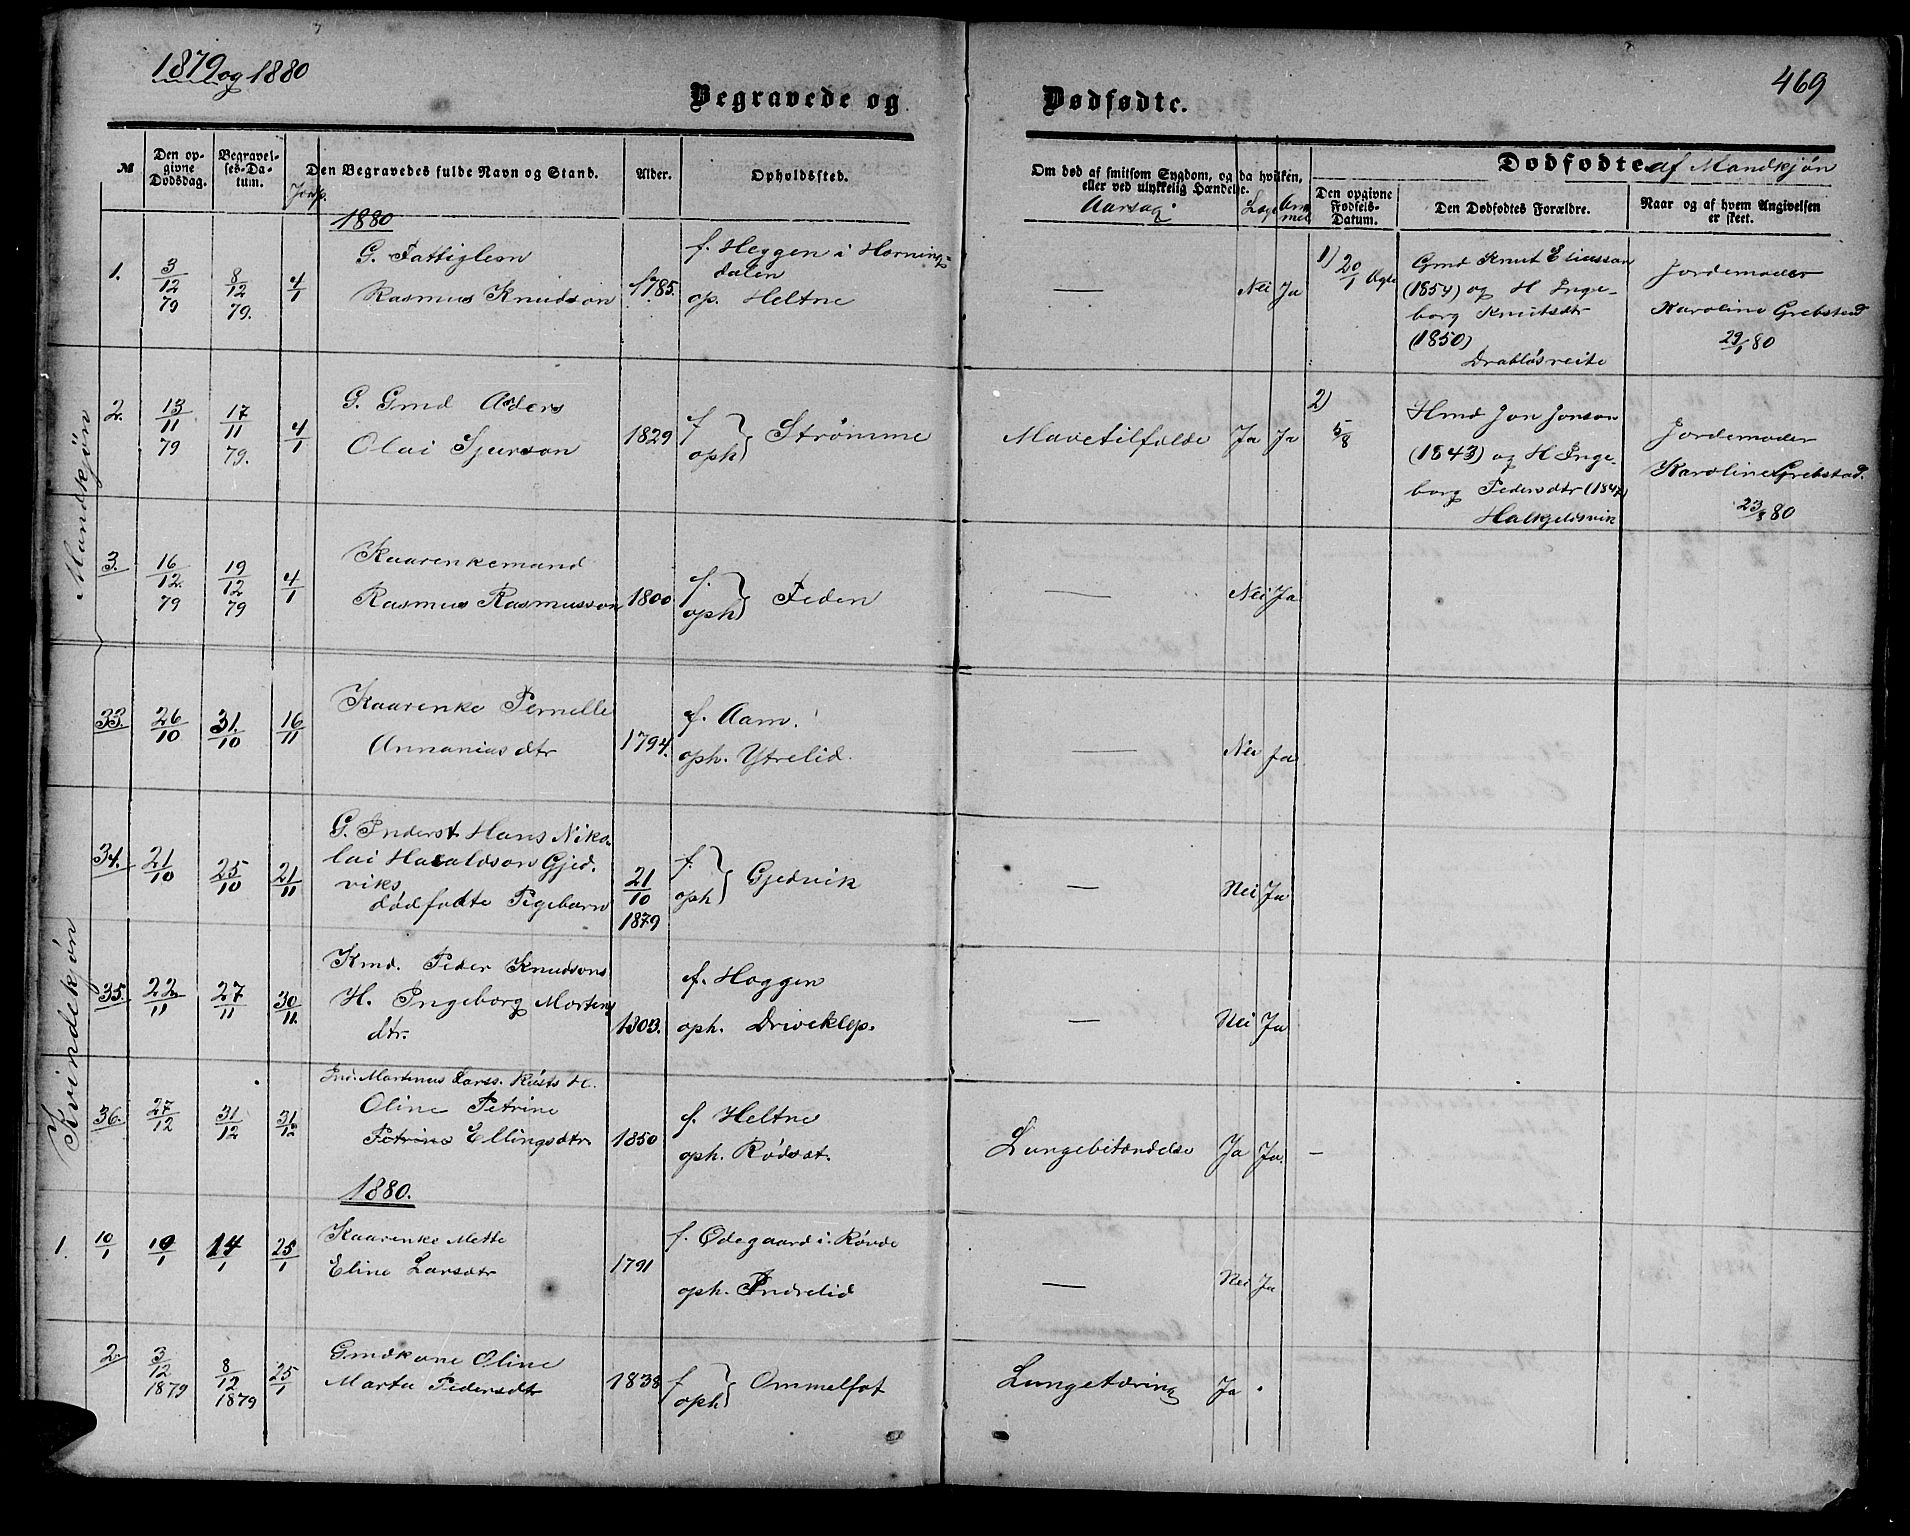 1879 og 1880
469
Begravede og Dødfødte.
№
Den op-
givne
Dødsdag.
Begravel-
ses-Da-
tum.
Jordf.
Den Begravedes fulde Navn og Stand.
Alder.
Opholdssted.
Om død af smitsom Sygdom, og da hvilken,
eller ved ulykkelig Hændelse.
Aarsag
Læge
Dødfødte af Mandkjøn
Den opgivne
Fødsels-
Datum.
Den Dødfødtes Forældre.
Naar og af hvem Angivelsen
er skeet.
Mandkjøn
1880
1.
3/12 79
8/12 79.
4/1
G. Fattiglem
Rasmus Knudson
1785.
f. Heggen i Horning-
dalen
op. Heltne
—
Nei
Ja
1)
20/1
Gmd Knut Eliasson
(1854) og H Inge-
borg Knutsdtr
(1850)
Drabløsreite
Jordemoder
Karoline Grebstad
29/1 80
2.
13/11 79
17/11 79.
4/1
G. Gmd Anders
Olai Sjurson
1829
f.
oph
} Strømme
Mavetilfælde
Ja
Ja
2)
5/8
Hmd Jon Jonson
(1843) og H Inge-
borg Pedersdtr (1847)
Halkjelsvik
Jordemoder
Karoline Grebstad.
23/8 80
3.
16/12. 79
19/12 79
4/1
Kaarenkemand
Rasmus Rasmusson
1800
f.
oph
} Feden
—
Nei
Ja
33.
26/10
31./10
16/11
Kaarenke Pernelle
Annanias dtr
1794.
f. Aam.
oph. Ytrelid.
—
Nei
Ja
Kvindekjøn
34.
21/10
25/10
21/11
G. Inderst Hans Niko-
lai Haraldson Gjed-
viks
dødfødte Pigebarn
21/10
1879
f.
oph
} Gjedvik
—
Nei
Ja
35.
22/11
27/11
30/11.
Kmd. Peder Knudsons
H. Ingeborg Mortens
dtr.
1803.
f. Heggen
oph. Driveklep.
—
Nei
Ja
36.
27/12
31/12
31/12
Ind. Martinus Larss. Røsts H.
Oline Petrine
Petrine Ellingsdtr
1850
f. Heltne
oph. Rødset.
Lungebetændelse
Ja
Ja.
—
1880.
1.
10/1
10/1
14/1
25/1
Kaarenke Mette
Eline Larsdtr
1791
f. Ødegaard i Røvde
oph. Indrelid
—
Nei
Ja
2.
3/12 1879
8/12 1879
25/1
Gmdkone Oline
Marta Pedersdtr
1838
f
oph
} Ommelfot
Lungetæring
Ja